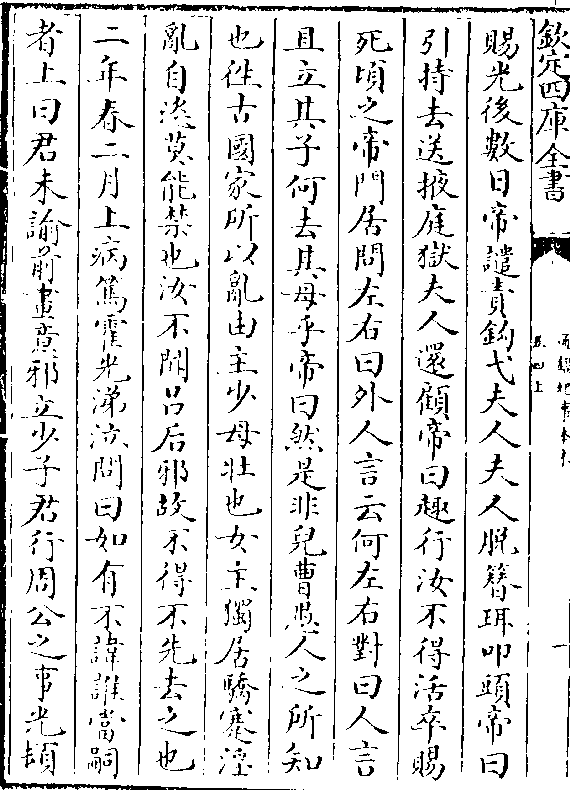 欽定四庫全書
賜光後數日帝譴責鈎弋夫人夫人脱簪珥叩頭帝曰
引持去送掖庭獄夫人還顧帝曰趣行汝不得活卒賜
死頃之帝閒居問左右曰外人言云何左右對曰人言
且立其子何去其母乎帝曰然是非兒曹愚人之所知
也往古國家所以亂由主少母壯也女主獨居驕蹇淫
亂自恣莫能禁也汝不聞吕后邪故不得不先去之也
二年春二月上病篤霍光涕泣問曰如有不諱誰當嗣
者上曰君未諭前畫意邪立少子君行周公之事光頓